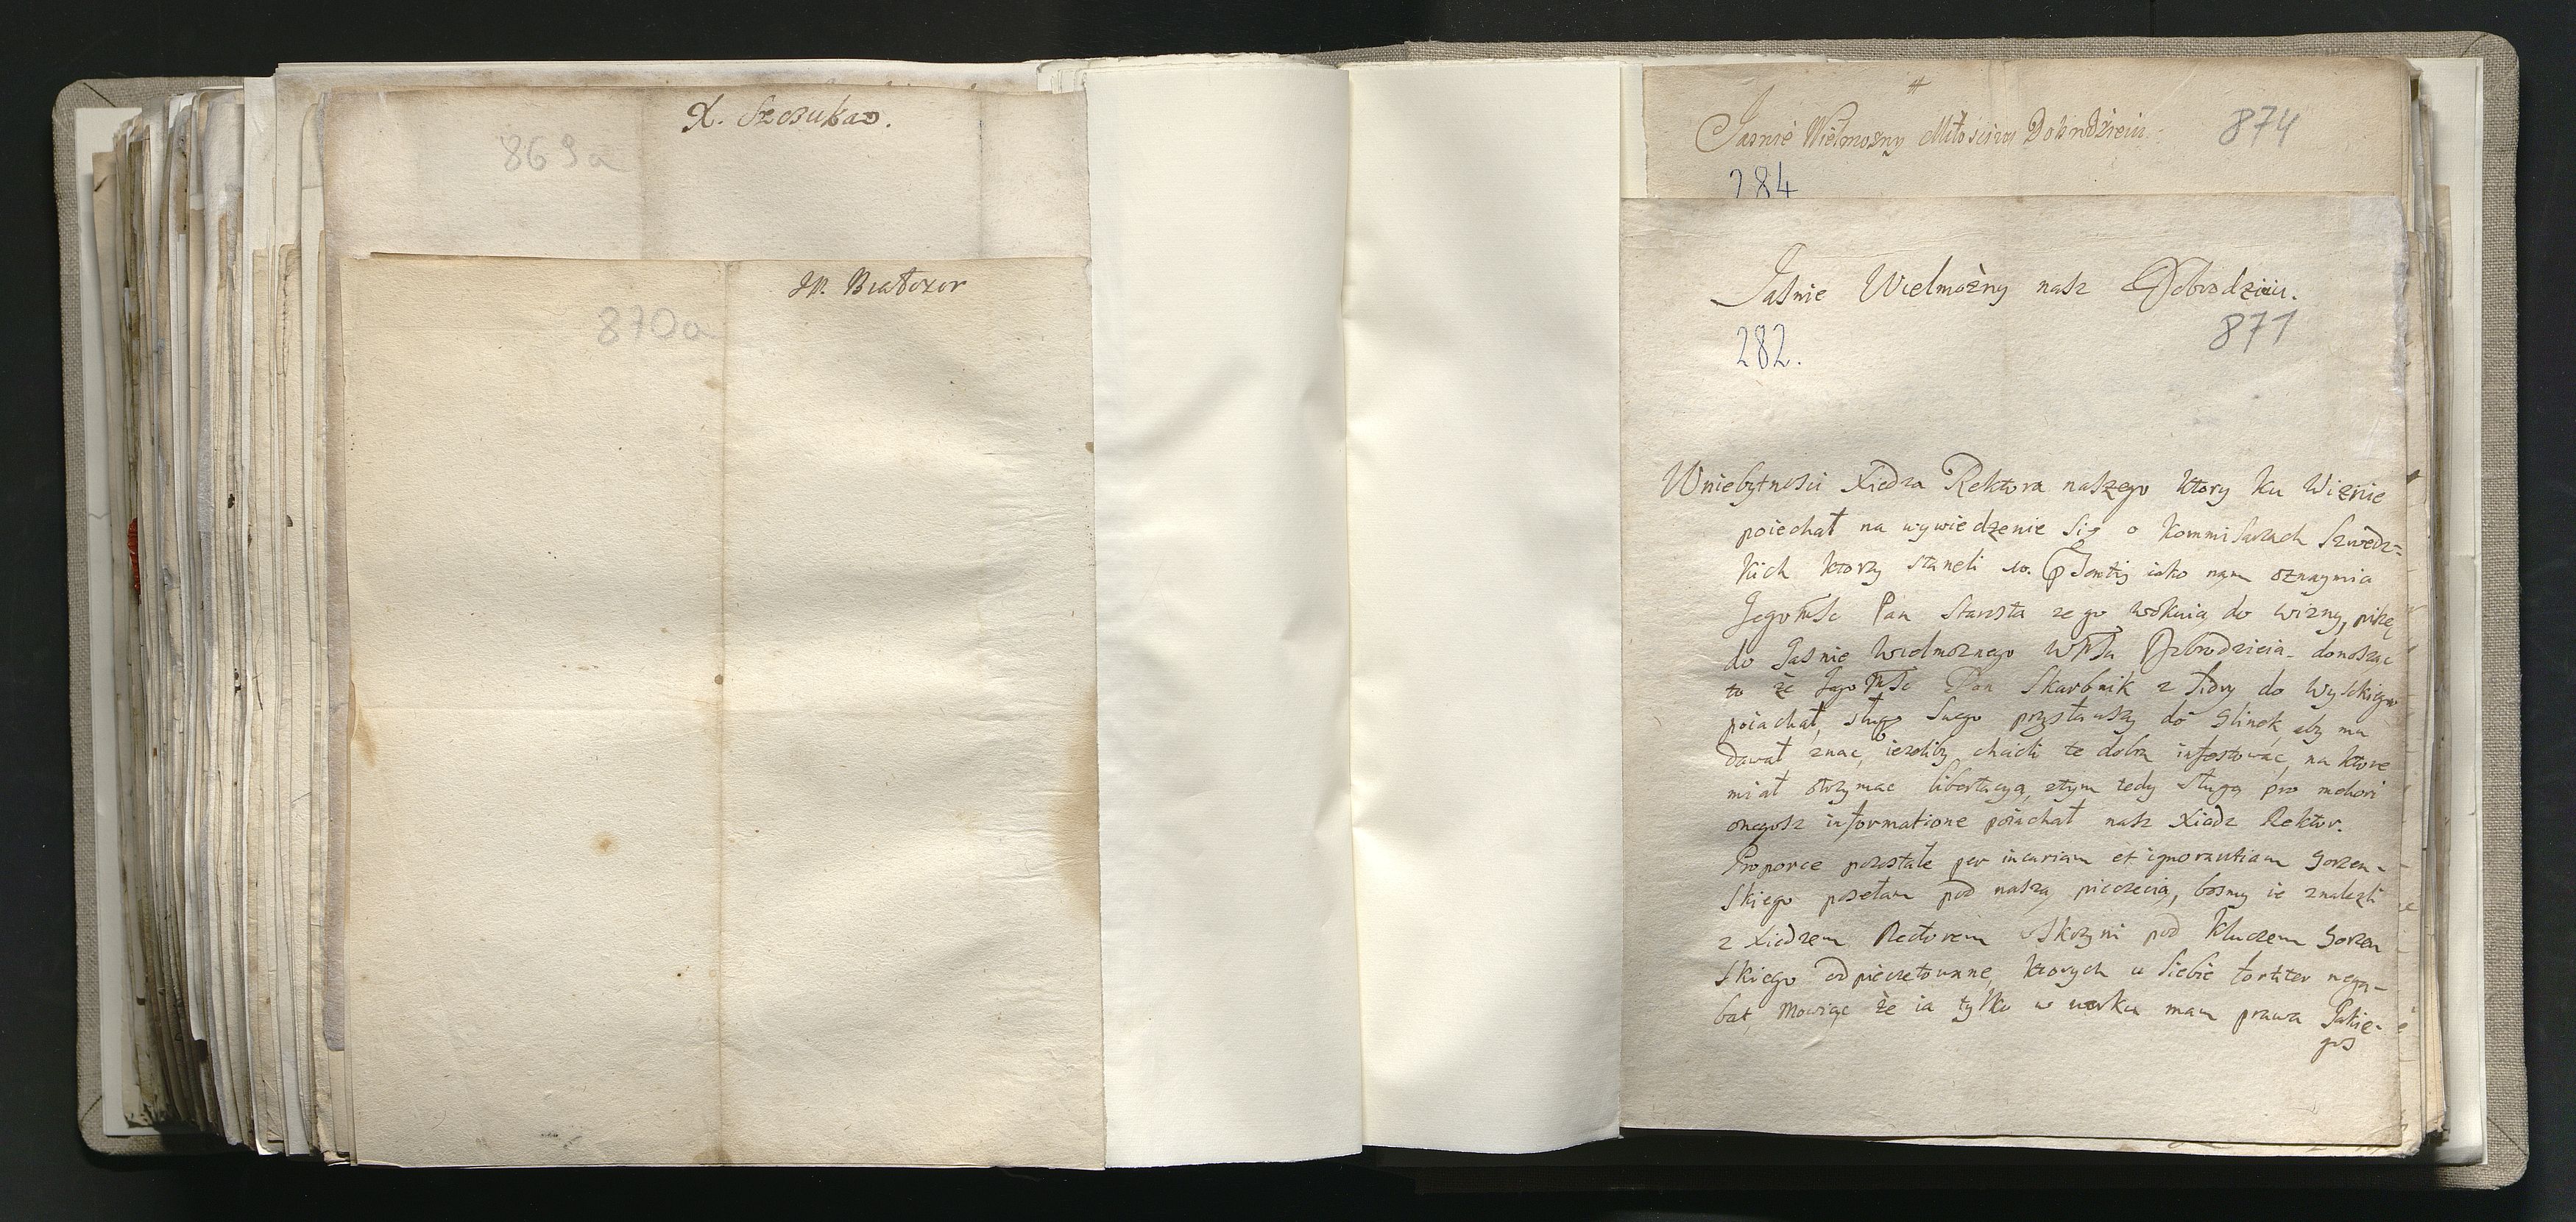 X. Szczuka.
869a
JP. Białozor
870a
#
Jasnie Wielmozny Miłosciwy Dobrodzieiu.
874
284
Jasnie Wielmożny nasz Dobrodzieiu.
871
282.
W niebytnosci Xiedza Rektora naszego ktory ku Wiznie
poiechał na wywiedzenie się o Kommisarzach Szwedz-
kich ktorzy staneli w. iako nam oznaymia
Jegomsc Pan Starosta ze go wokuią do Wizny, piszę
do Jasnie Wielmoznego WMSu Dobrodzieia donosząc
to że Jego Msc Pan Skarbnik z do Wysokiego
poiachał, sługę swego przysławszy do Glinek, aby mu
dawał znac, ieżeliby chcieli te dobra infestowác, na ktore
miał otrzymac libertacyą, ztym tedy sługą pro meliori
onegosz informatione poiachał nasz Xiadz Rektor.
Proporce pozostałe per incuriam et ignorantiam Gorzen-
skiego posełam pod naszą pieczecią, bosmy ie znalezli
z Xiedzem Rectorem w skrzyni pod kluczem Gorzen
skiego odpieczetowane, ktorych u siebie fortiter nega-
bat, Mowiąc że ia tylko w worku mam prawa Jakie-
gos